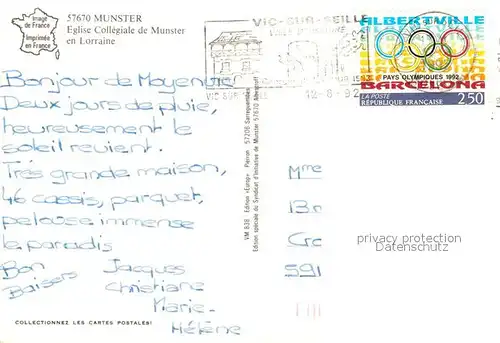 Image
de France
Imprimée
en France
57670 MUNSTER
Eglise Collégiale de Munster
en Lorraine
VIC-SUR-SEILLE
12-8-92
ALBERTVILLE
PAYS OLYMPIQUES 1992
BARCELONA
LA POSTE
RÉPUBLIQUE FRANÇAISE 2,50
Bonjour de Moyenvic
Deux jours de pluie,
heureusement le
soleil revient.
Très grande maison,
46 cassis, parquet,
pelouse immense
le paradis
Bon Jacques
Baisers Christiane
Marie-
Hélène
VM 838 Edition «Europ» Pierron 57206 Sarreguemines
Edition spéciale du Syndicat d'Initiative de Munster 57670 Albestroff
Mme
Br
Cr
591
privacy protection
Datenschutz
COLLECTIONNEZ LES CARTES POSTALES!